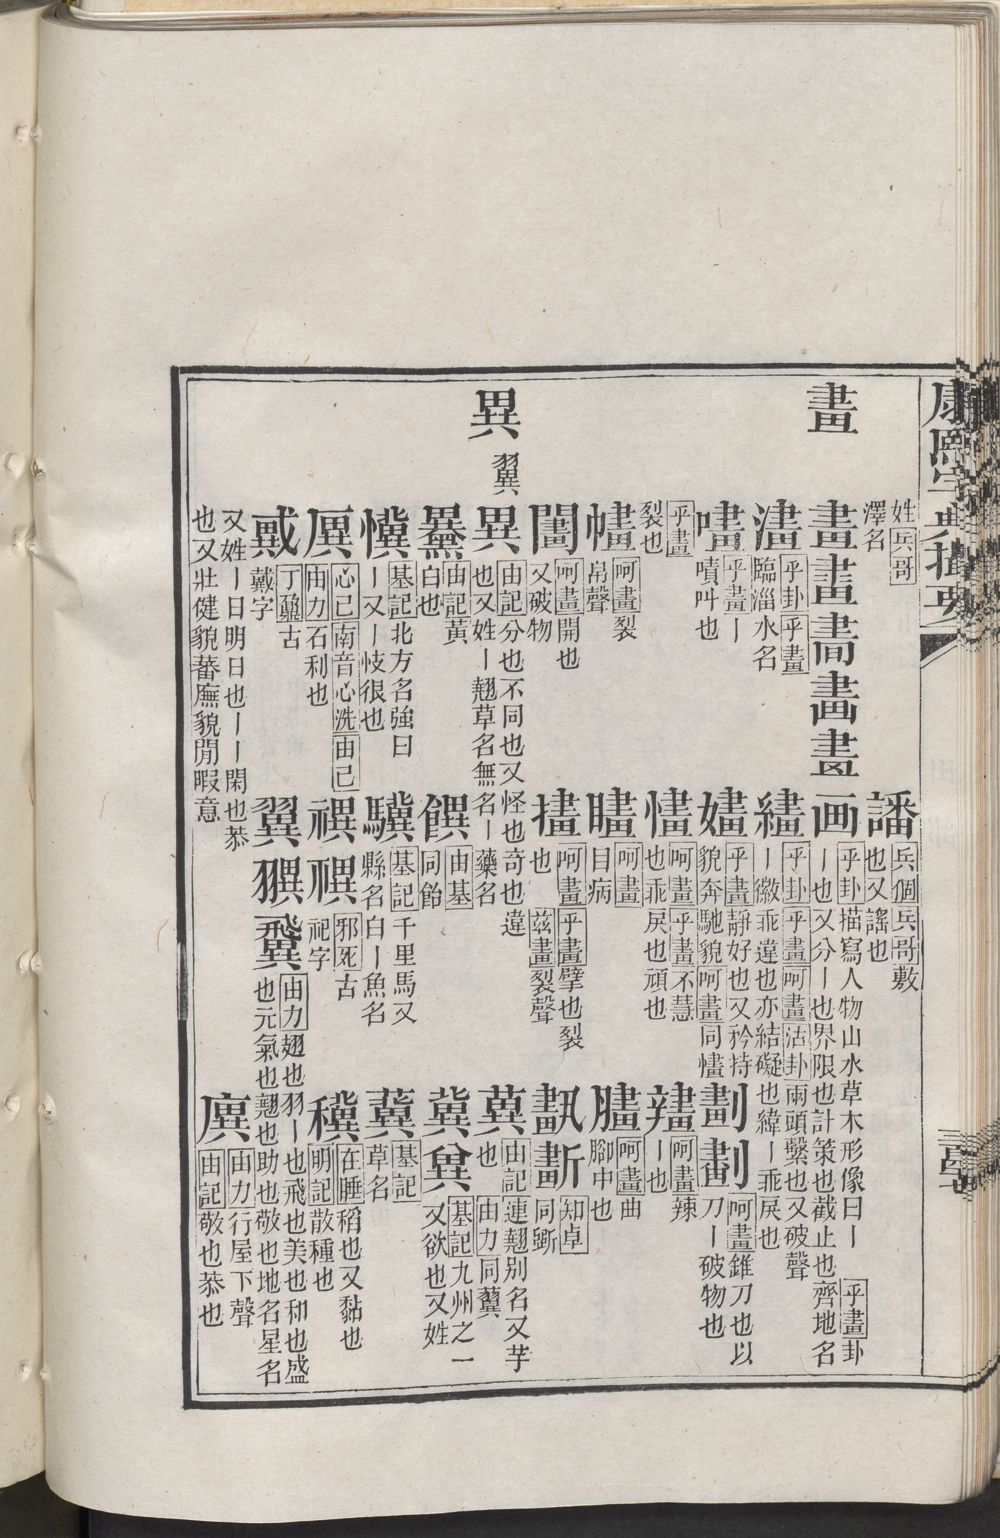 康熙字典撮要
姓兵哥
澤名
譒兵個兵哥敷
也又謠也
畫
畫畵畫画乎卦描寫人物山水草木形像曰丨乎畫卦
丨也又分丨也界限也計策也截止也齊地名
澅乎卦乎畫
臨淄水名
繣乎卦乎畫呵畫沽卦兩頭繫也又破聲
丨徽乖違也亦結礙也緯丨乖戾也
嘳乎畫丨
嘖叫也
嫿乎畫靜好也又矜持
貌奔馳貌呵畫同㦎
劃呵畫錐刀也以
刀丨破物也
乎畫
裂也
㦎呵畫乎畫不慧
也乖戾也頑也
呵畫辣
丨也
呵畫裂
帛聲
呵畫
目病
呵畫曲
腳中也
呵畫開也
又破物
呵畫乎畫擘也裂
也茲畫裂聲
知卓
同斲
異
翼
異由記分也不同也又怪也奇也違
也又姓丨翹草名無名丨藥名
由記連翹别名又芋
也由力同虉
由記黃
白也
由基
同飴
冀基記九州之一
又欲也又姓
基記北方名強曰
丨又丨忮很也
驥基記千里馬又
縣名白丨魚名
基記
草名
心己南音心洗由己
由力石利也
禩邪死古
祀字
穓在睡稻也又黏也
明記散種也
戴丁䪢古
戴字
翼由力翅也羽丨也飛也美也和也盛
也元氣也翹也助也敬也地名星名
又姓丨日明日也丨丨閑也恭
也又壯健貌蕃廡貌閒暇意
廙由力行屋下聲
由記敬也恭也